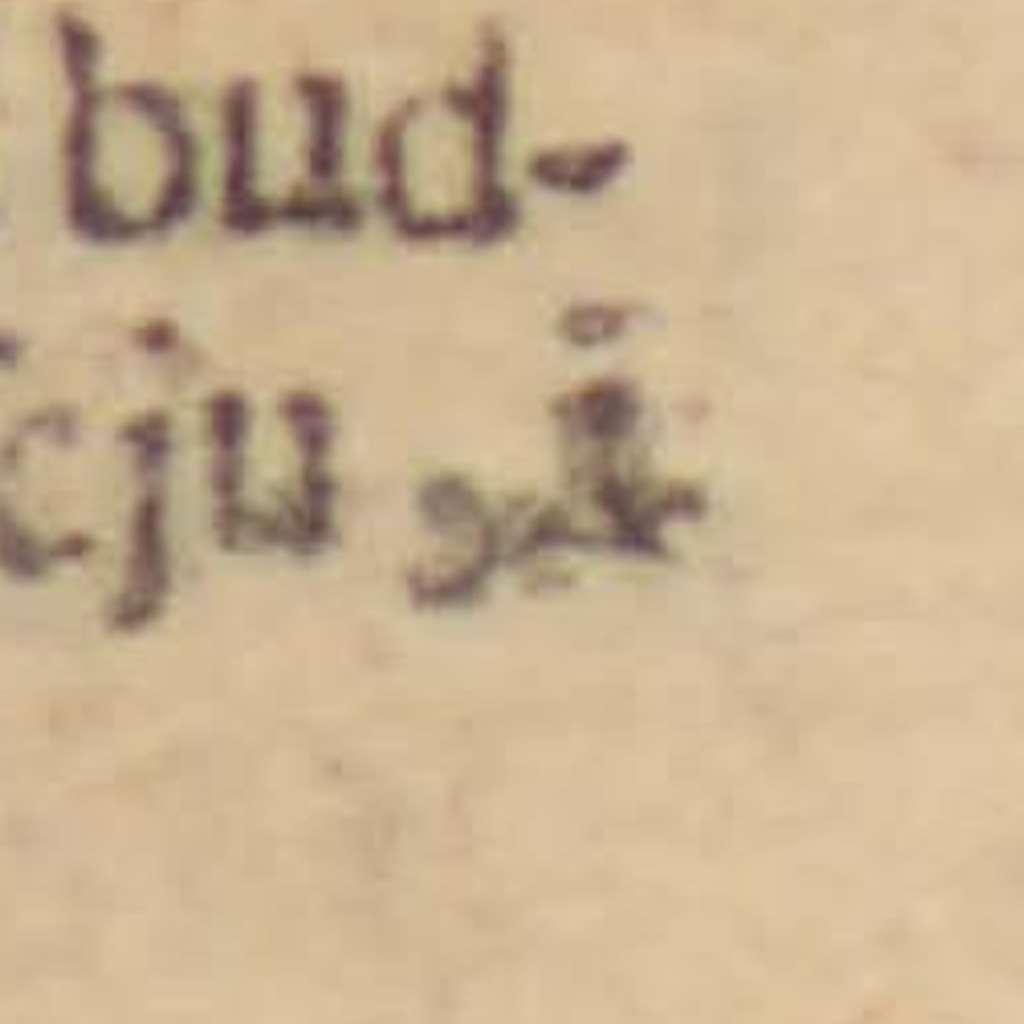 bud-
cju